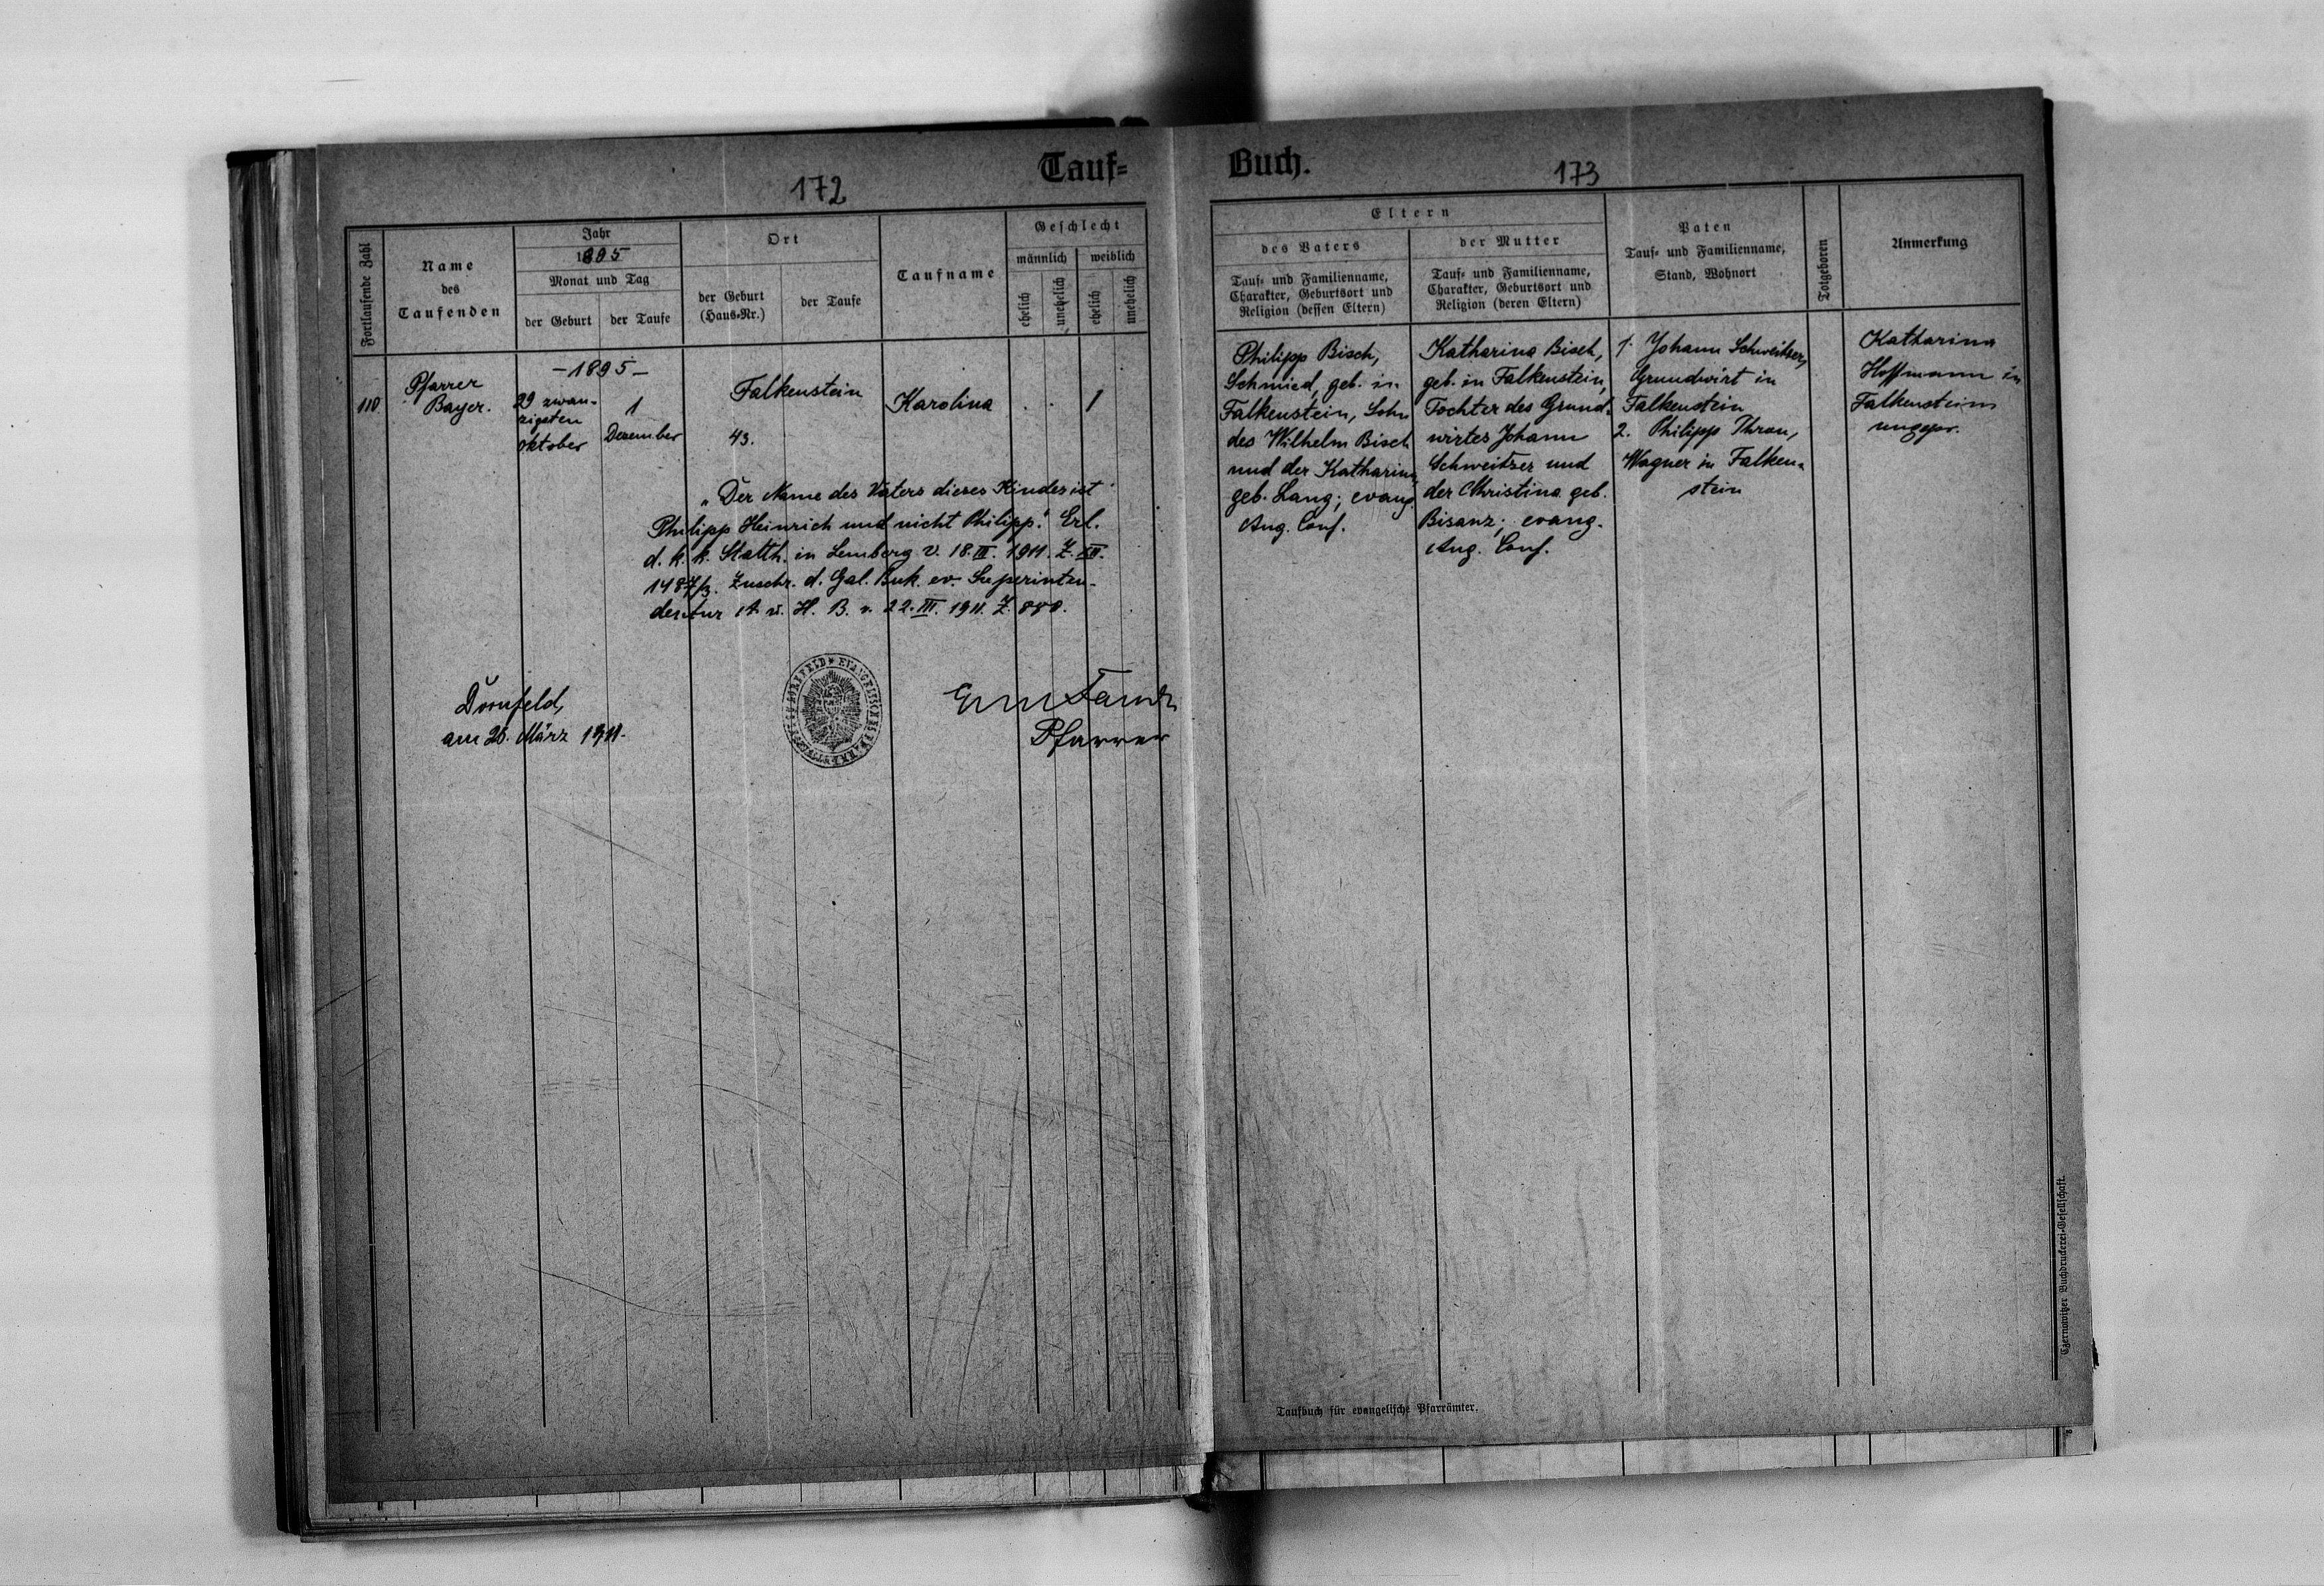 Tauf= Buch.
172
173
Fortlaufende Zahl
Name
des
Taufenden
Jahr
1895
Monat und Tag
der Geburt
der Taufe
Ort
der Geburt
(Haus=Nr.)
der Taufe
Taufname
Geschlecht
männlich
weiblich
ehelich
unehelich
ehelich
unehelich
Eltern
des Vaters
Tauf= und Familienname,
Charakter, Geburtsort und
Religion (dessen Eltern)
der Mutter
Tauf= und Familienname,
Charakter, Geburtsort und
Religion (deren Eltern)
Paten
Tauf= und Familienname,
Stand, Wohnort
Totgeboren
Anmerkung
110
Pfarrer
Bayer.
-1895-
29 zwan-
zigsten
Oktober
1
Dezember
Falkenstein
43.
Karolina
1
Philipp Bisch,
Schmied, geb. in
Falkenstein, Sohn
des Wilhelm Bisch
und der Katharina,
geb. Lang; evang.
Aug. Conf.
Katharina Bisch,
geb. in Falkenstein,
Tochter des Grund=
wirtes Johann
Schweitzer und
der Christina geb.
Bisanz; evang.
Aug. Conf.
1. Johann Schweitzer,
Grundwirt in
Falkenstein
2. Philipp Thron,
Wagner in Falken=
stein
Katharina
Hoffmann in
Falkenstein
ungepr.
„Der Name des Vaters dieses Kindes ist
Philipp Heinrich und nicht Philipp." Erl.
d. k. k. Statth. in Lemberg v. 18. III. 1911. Z. XII.
1487/3. Zuschr. d. Gal. Buk. ev. Superinten-
dentur A. u. H. B. v. 22. III. 1911. Z. 880.
Dornfeld,
am 26. März 1911.
Pfarrer
Taufbuch für evangelische Pfarrämter.
Czernowitzer Buchdruckerei=Gesellschaft.